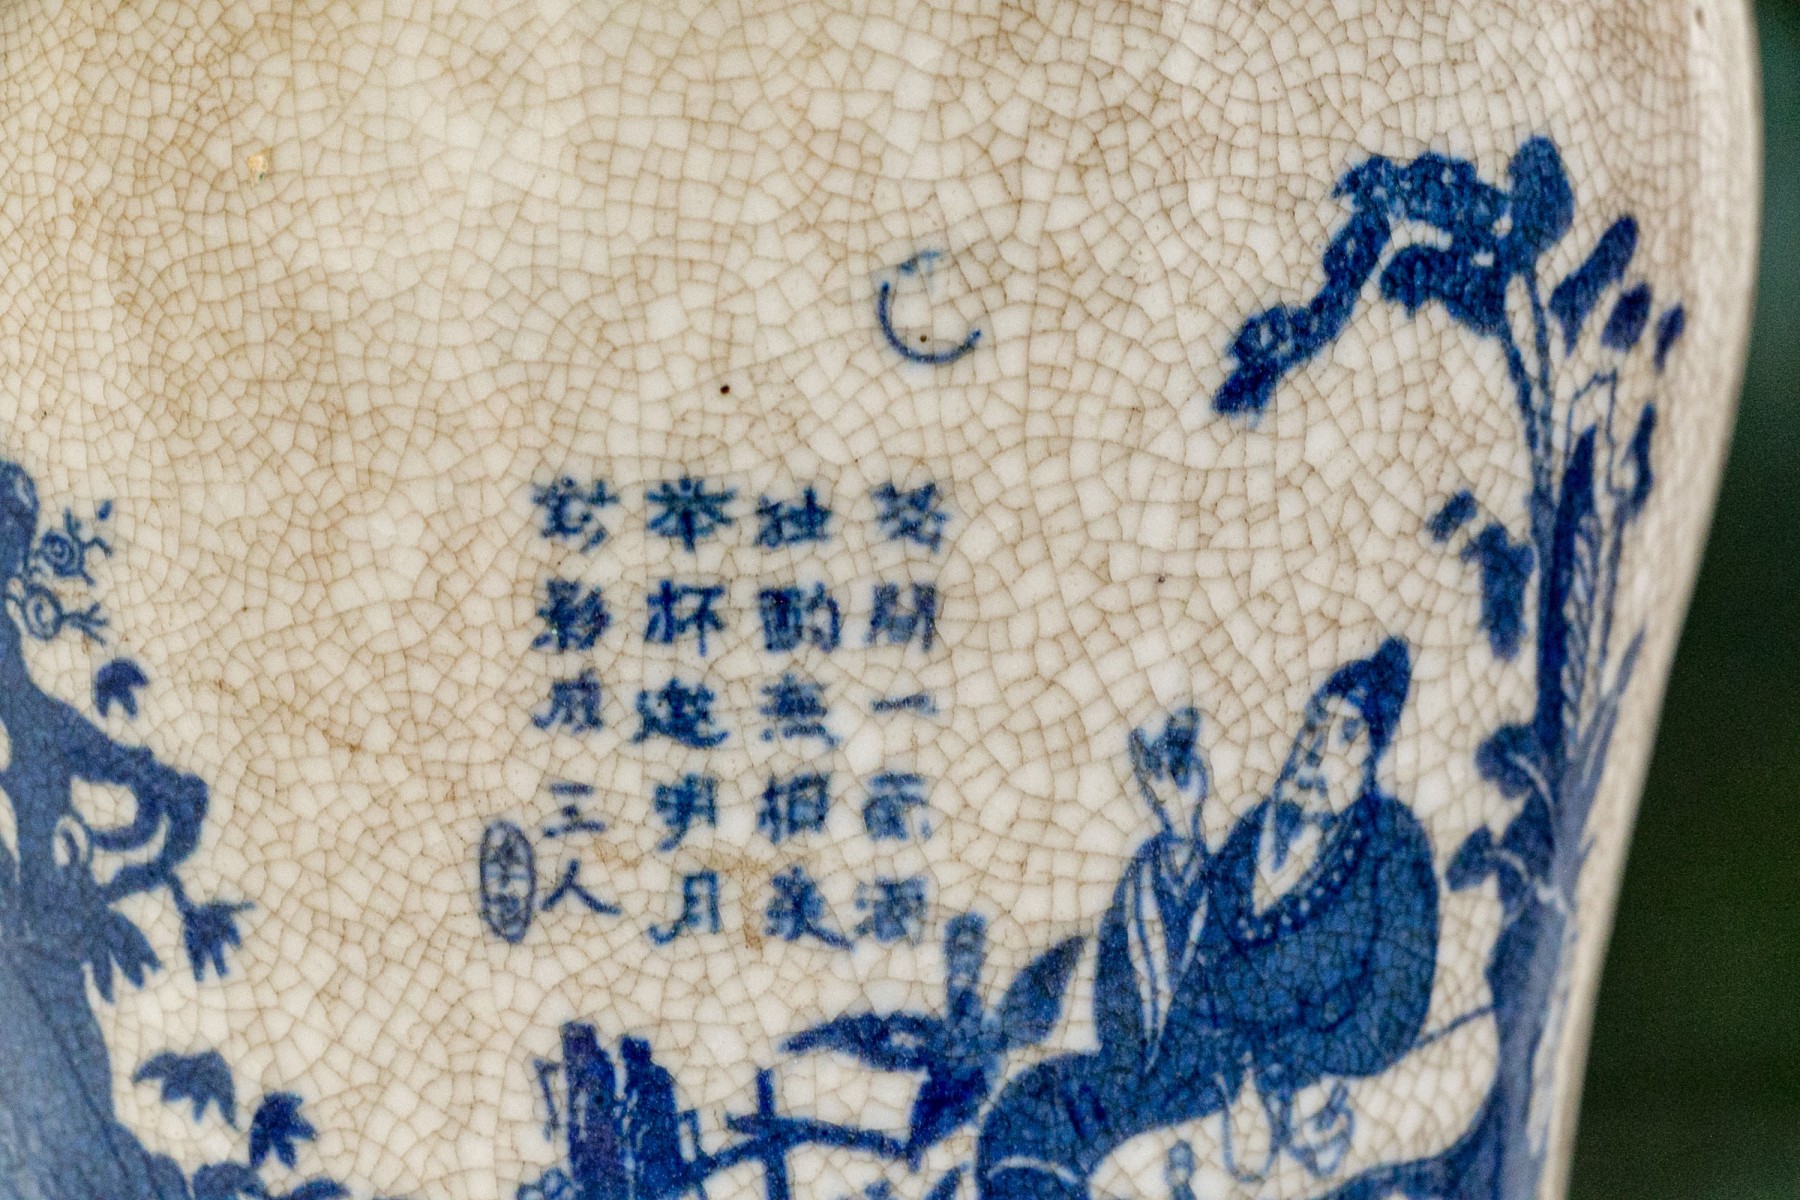 花間一壶酒
独酌無相亲
举杯邀明月
對影成三人